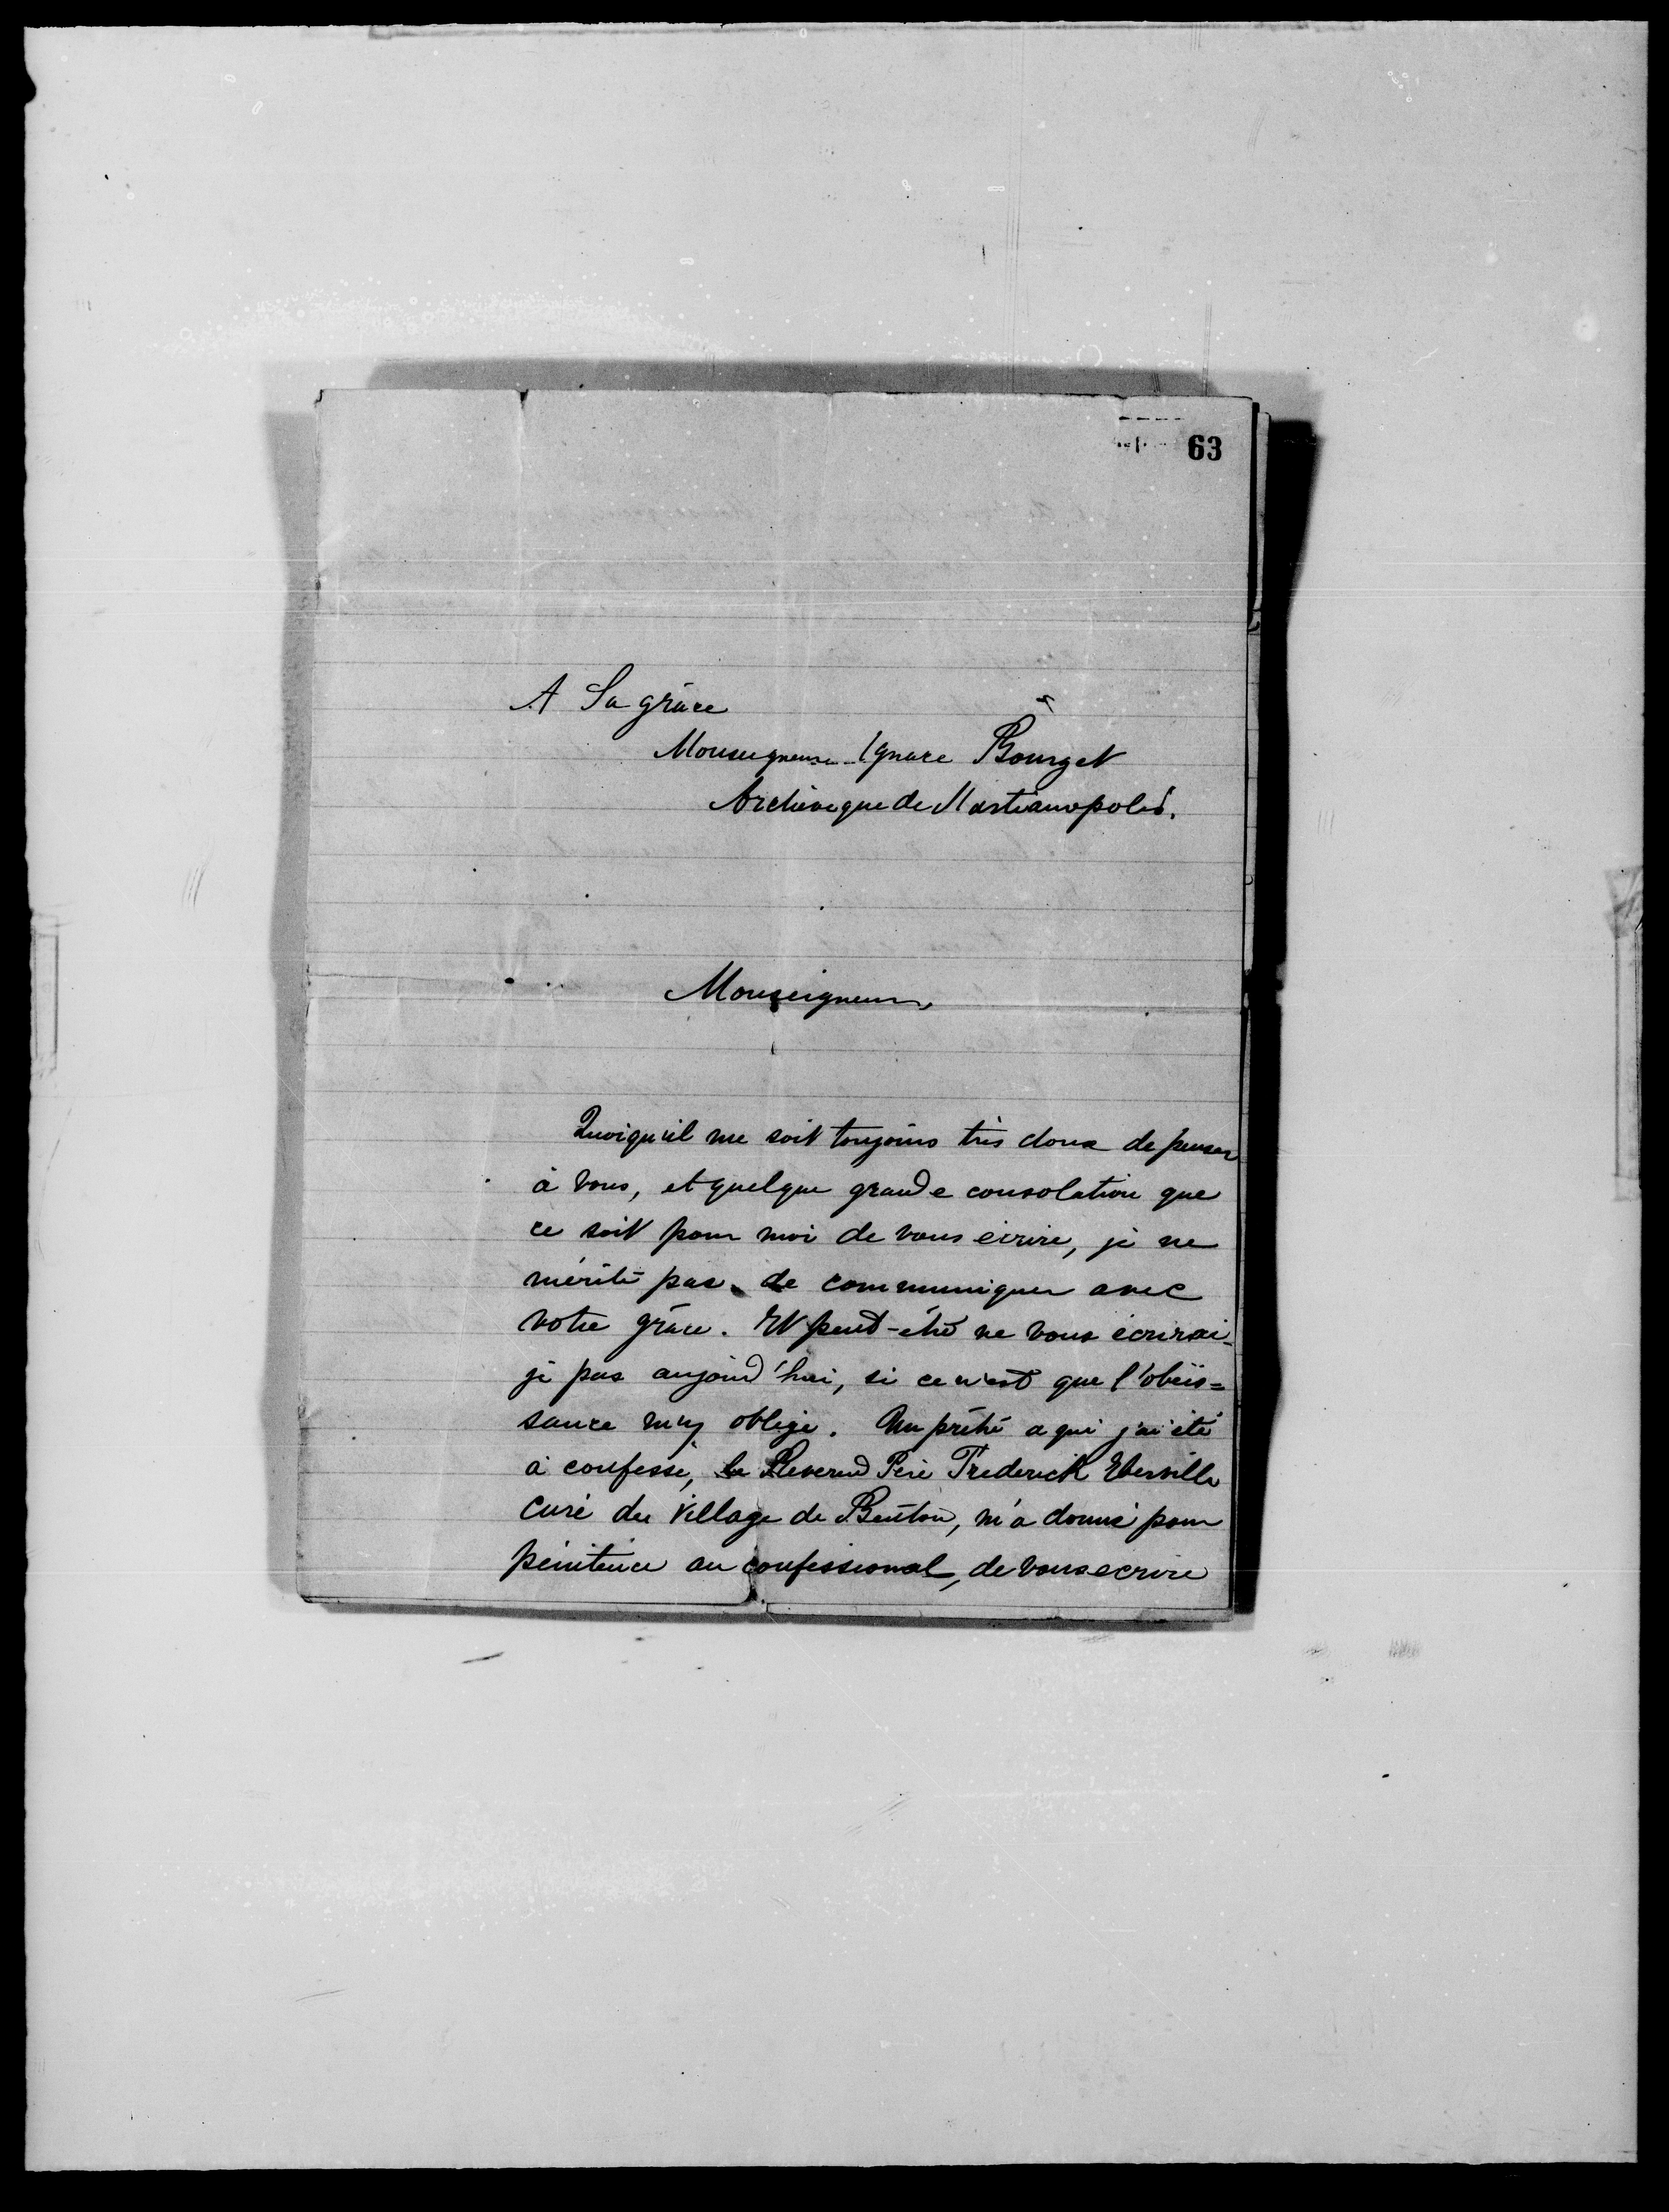 63
A Sa grâce
Monseigneur Ignace Bourget
Archevêque de Martianopolis.
Monseigneur,
Quoiqu'il me soit toujours très doux de penser
à vous, et quelque grande consolation que
ce soit pour moi de vous écrire, je ne
mérite pas de communiquer avec
votre grâce. Et peut-être ne vous écrirai-
je pas aujourd'hui, si ce n'est que l'obéis=
sance m'y oblige. Un prêtre a qui j'ai été
à confesse, le Reverend Père Frederick Eberville
curé du Village de Benton, m'a donné pour
pénitence au confessional, de vous ecrire